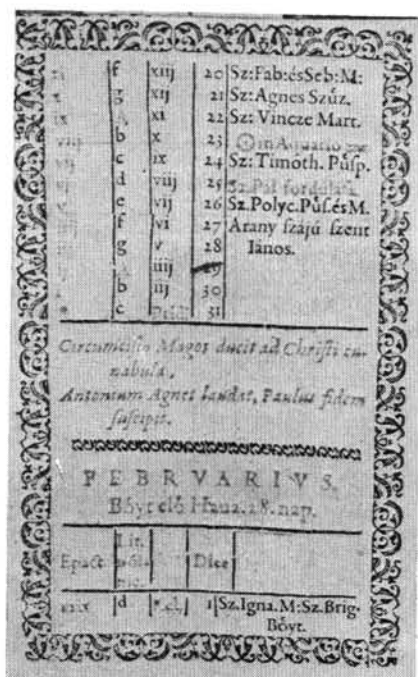 xj f xiij 20 Sz:Fab:ésSeb:M:
x g xij 21 Sz:Agnes Szűz.
ix A xi 22 Sz: Vincze Mart.
viij b x 23 in Aquario
vij c ix 24 Sz: Timóth. Půsp.
vj d viij 25 Sz. Pál fordúlása
v e vij 26 Sz.Polyc.Půs.ésM.
f vi 27 Arany szájú szent
g v 28 Iános.
A iiij 29
b iij 30
* c Prid. 31
Circumcisio Magos ducit ad Christi cu-
nabula,
Antonium Agnes laudat, Paulus fidem
suscipit.
FEBRVARIVS.
Bőyt elő Haua. 28. nap.
Lit.
Epact Dies
xxix d 1 Sz.Igna.M:Sz.Brig-
Bőyt.